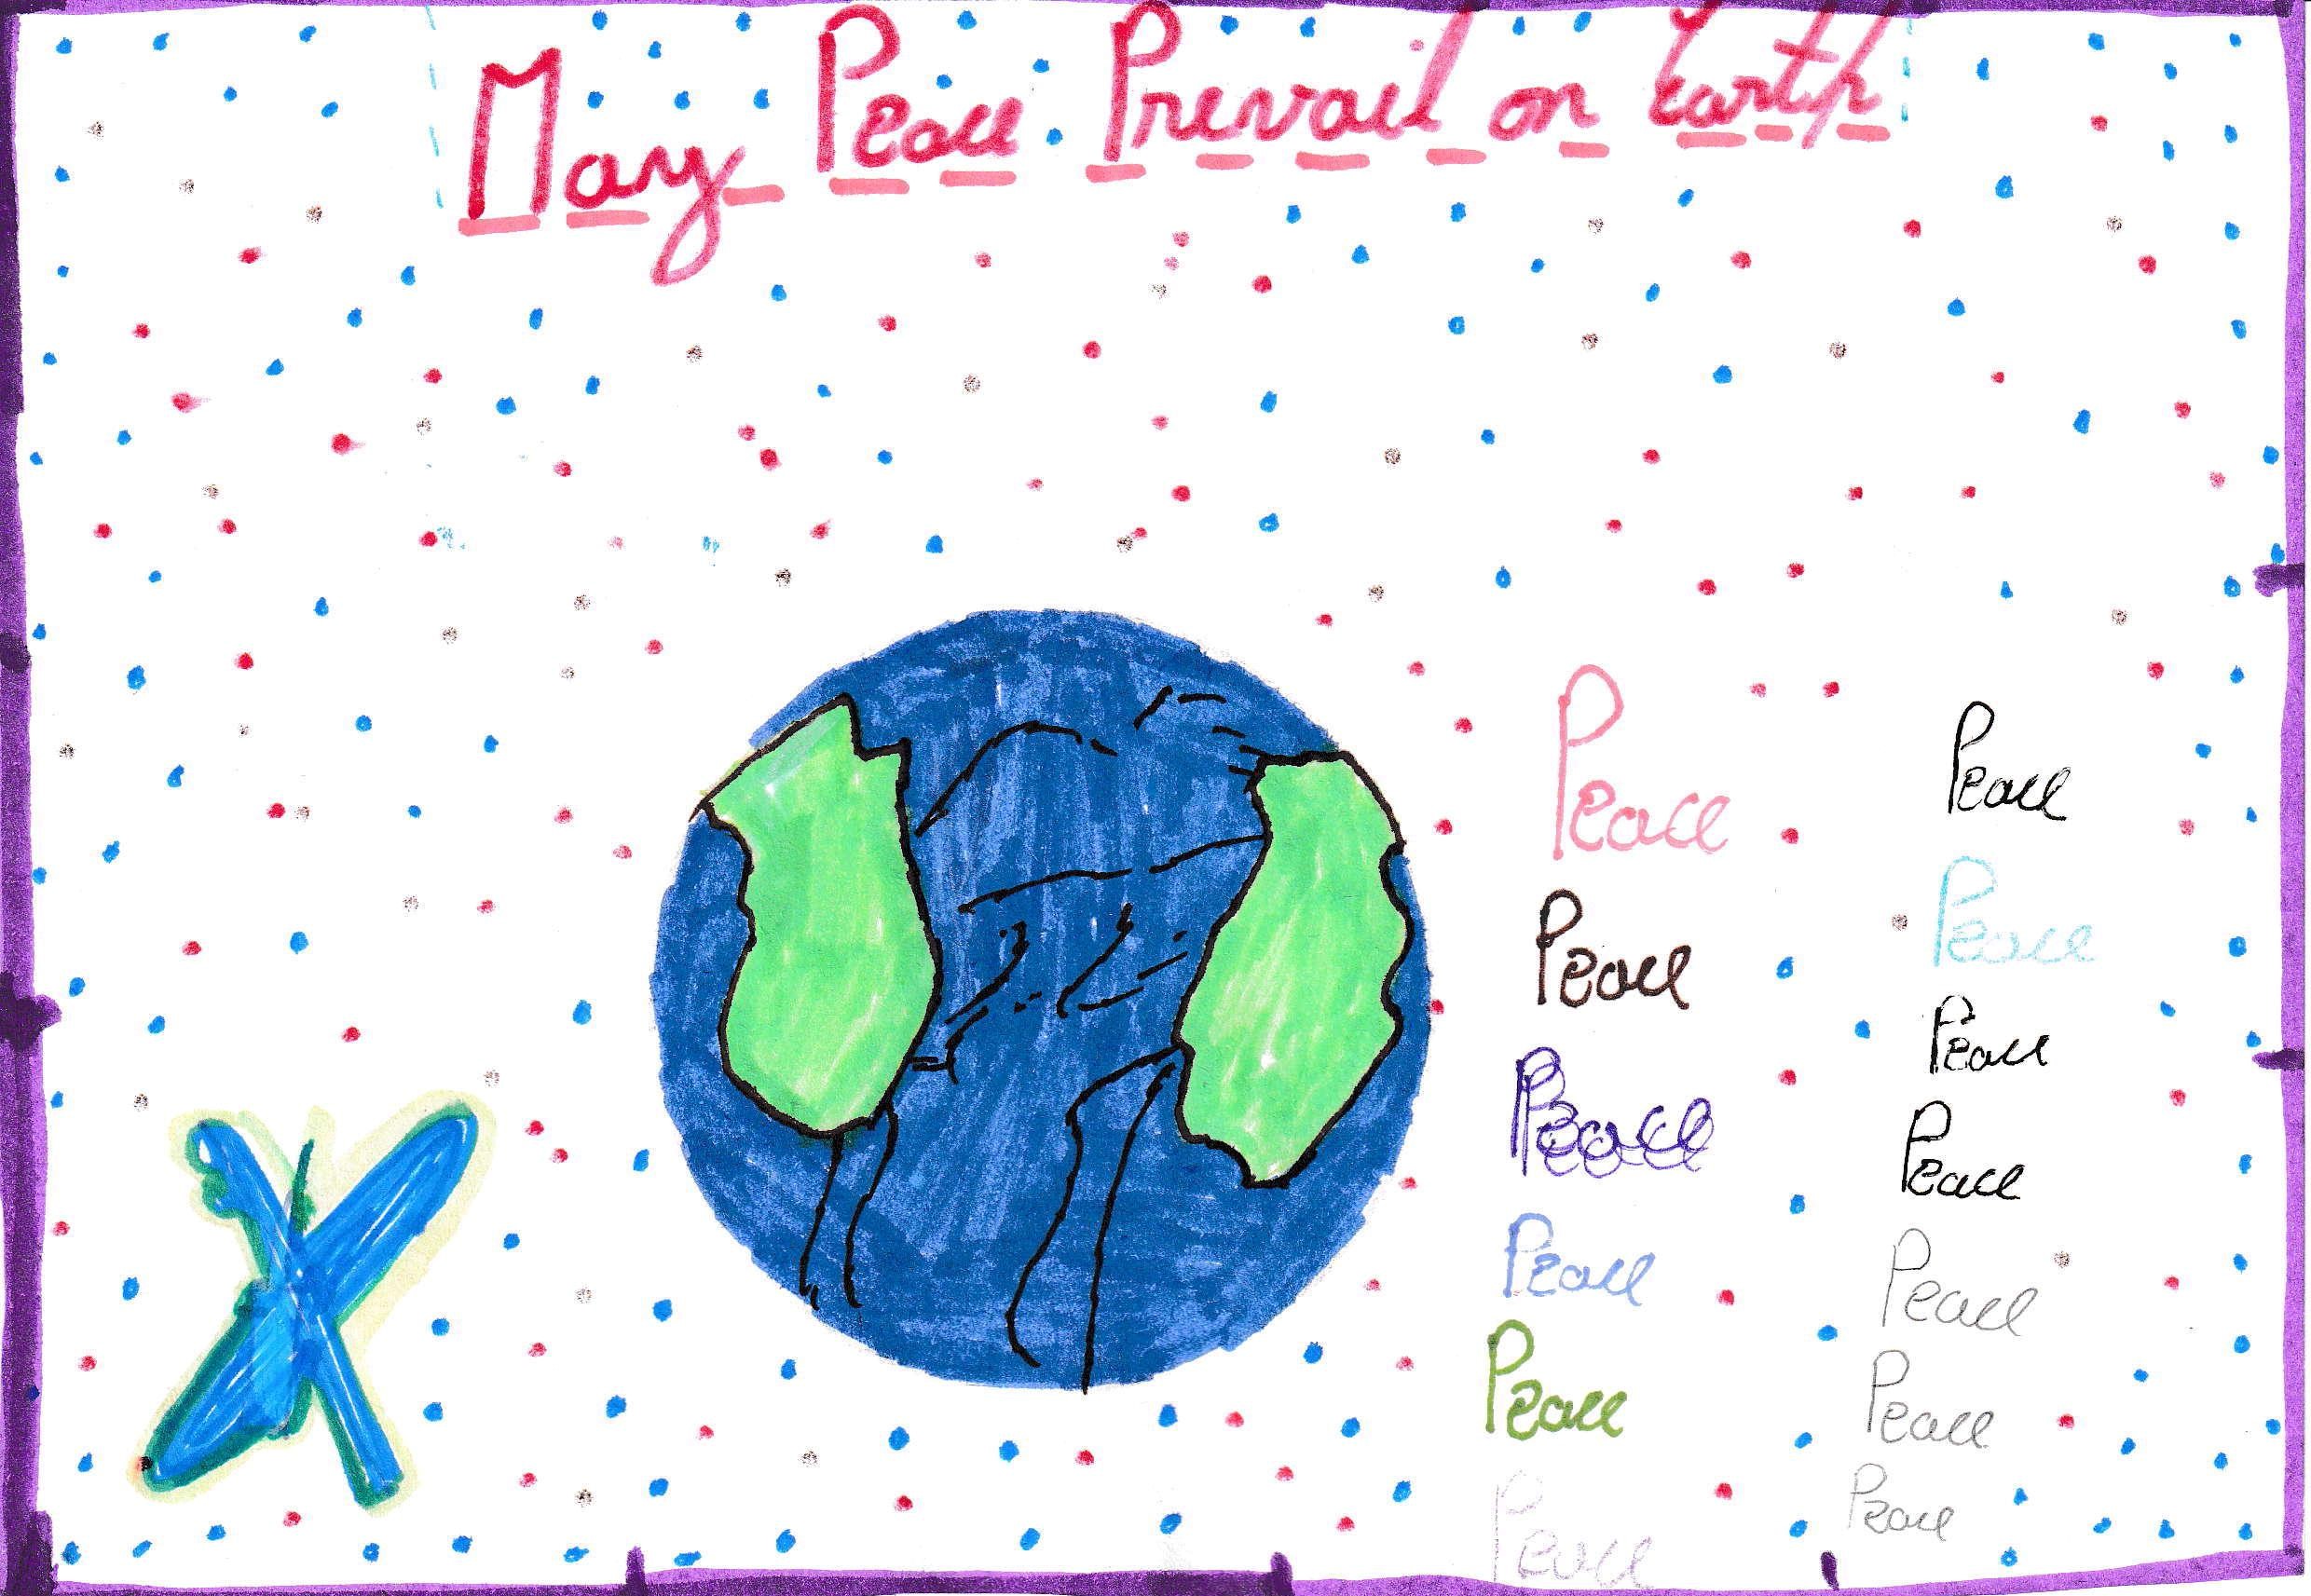 May Peace Prevail on Earth
Peace
Peace
Peace
Peace
Peace
Peace
Peace
Peace
Peace
Peace
Peace
Peace
Peace